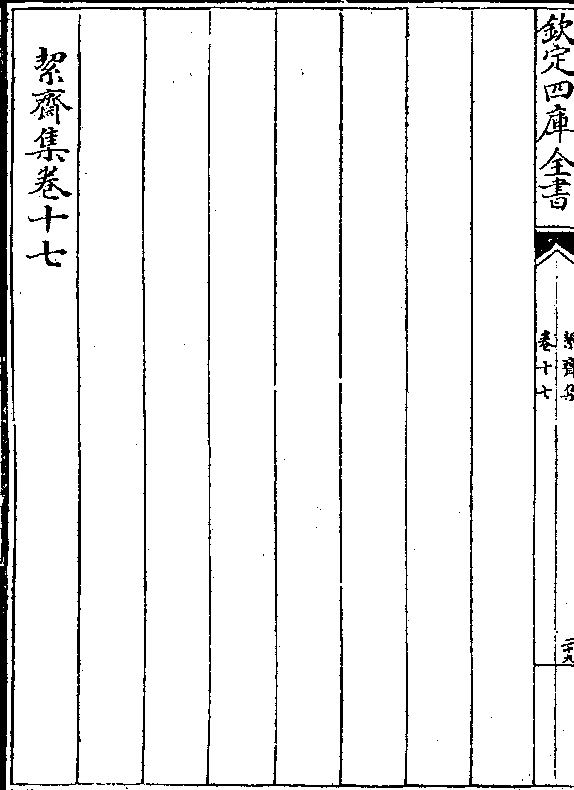 欽定四庫全書
絜齋集
卷十七
二十九
絜齋集卷十七